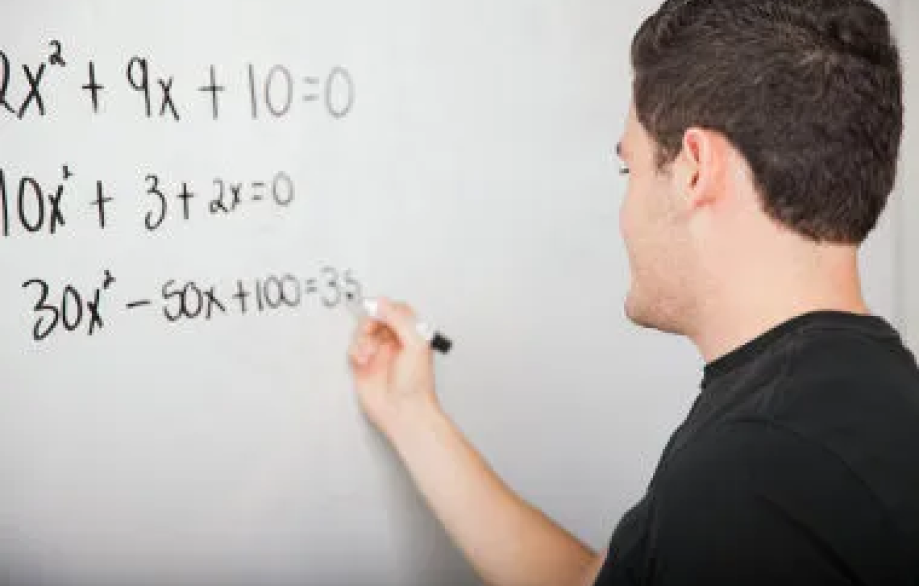 2x² + 9x + 10 = 0
10x² + 3 + 2x = 0
30x² - 50x + 100 = 35